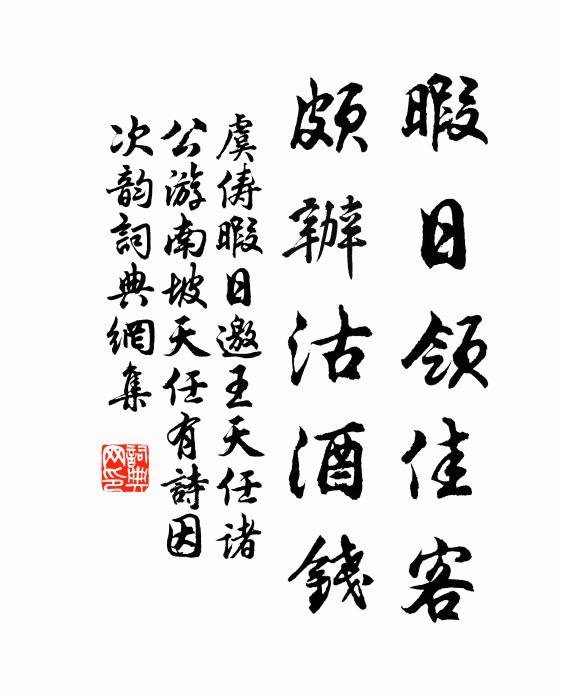 暇日領佳客
頗辦沽酒錢
虞儔暇日邀王天任諸
公游南坡天任有詩因
次韵詞典網集
詞典网印